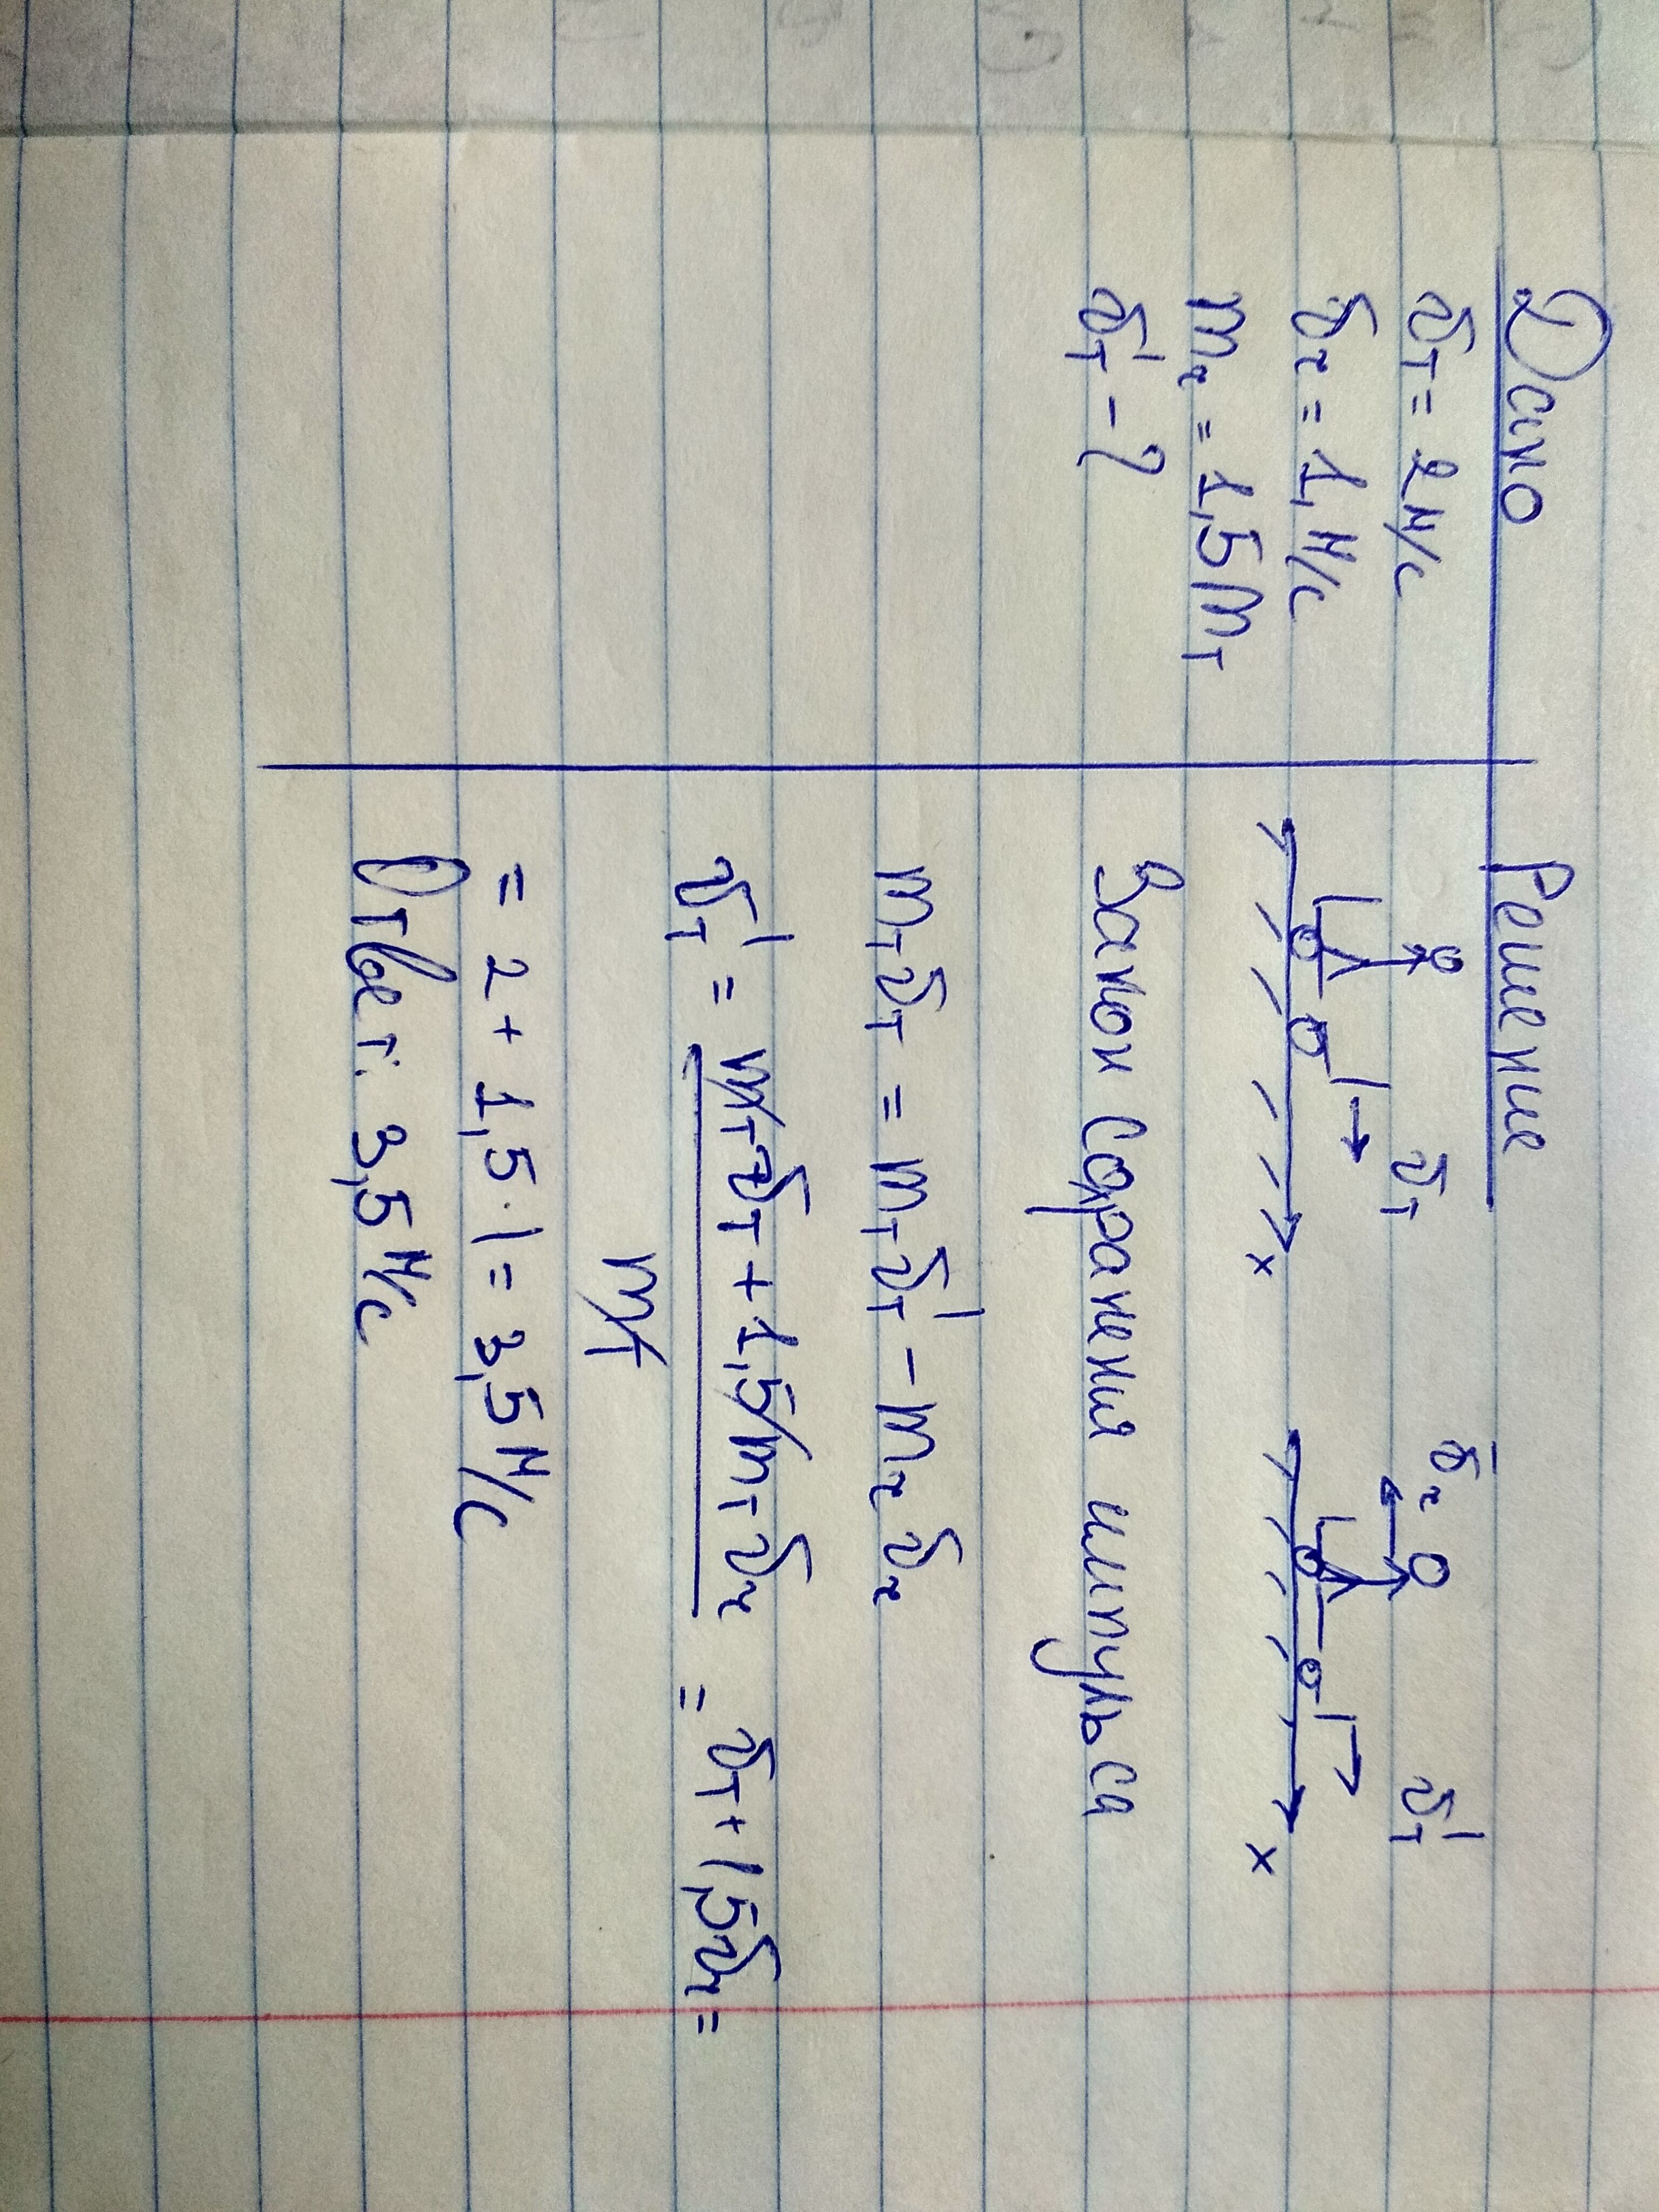 Дано
υт = 2 м/с
υч = 1 м/с
mч = 1,5 mт
υт' - ?
Решение
υт
x
υ̅ч
υт'
x
Закон сохранения импульса
mт υт = mт υт' - mч υч
υт' = (mт υт + 1,5 mт υч) / mт = υт + 1,5 υч =
= 2 + 1,5 · 1 = 3,5 м/с
Ответ: 3,5 м/с